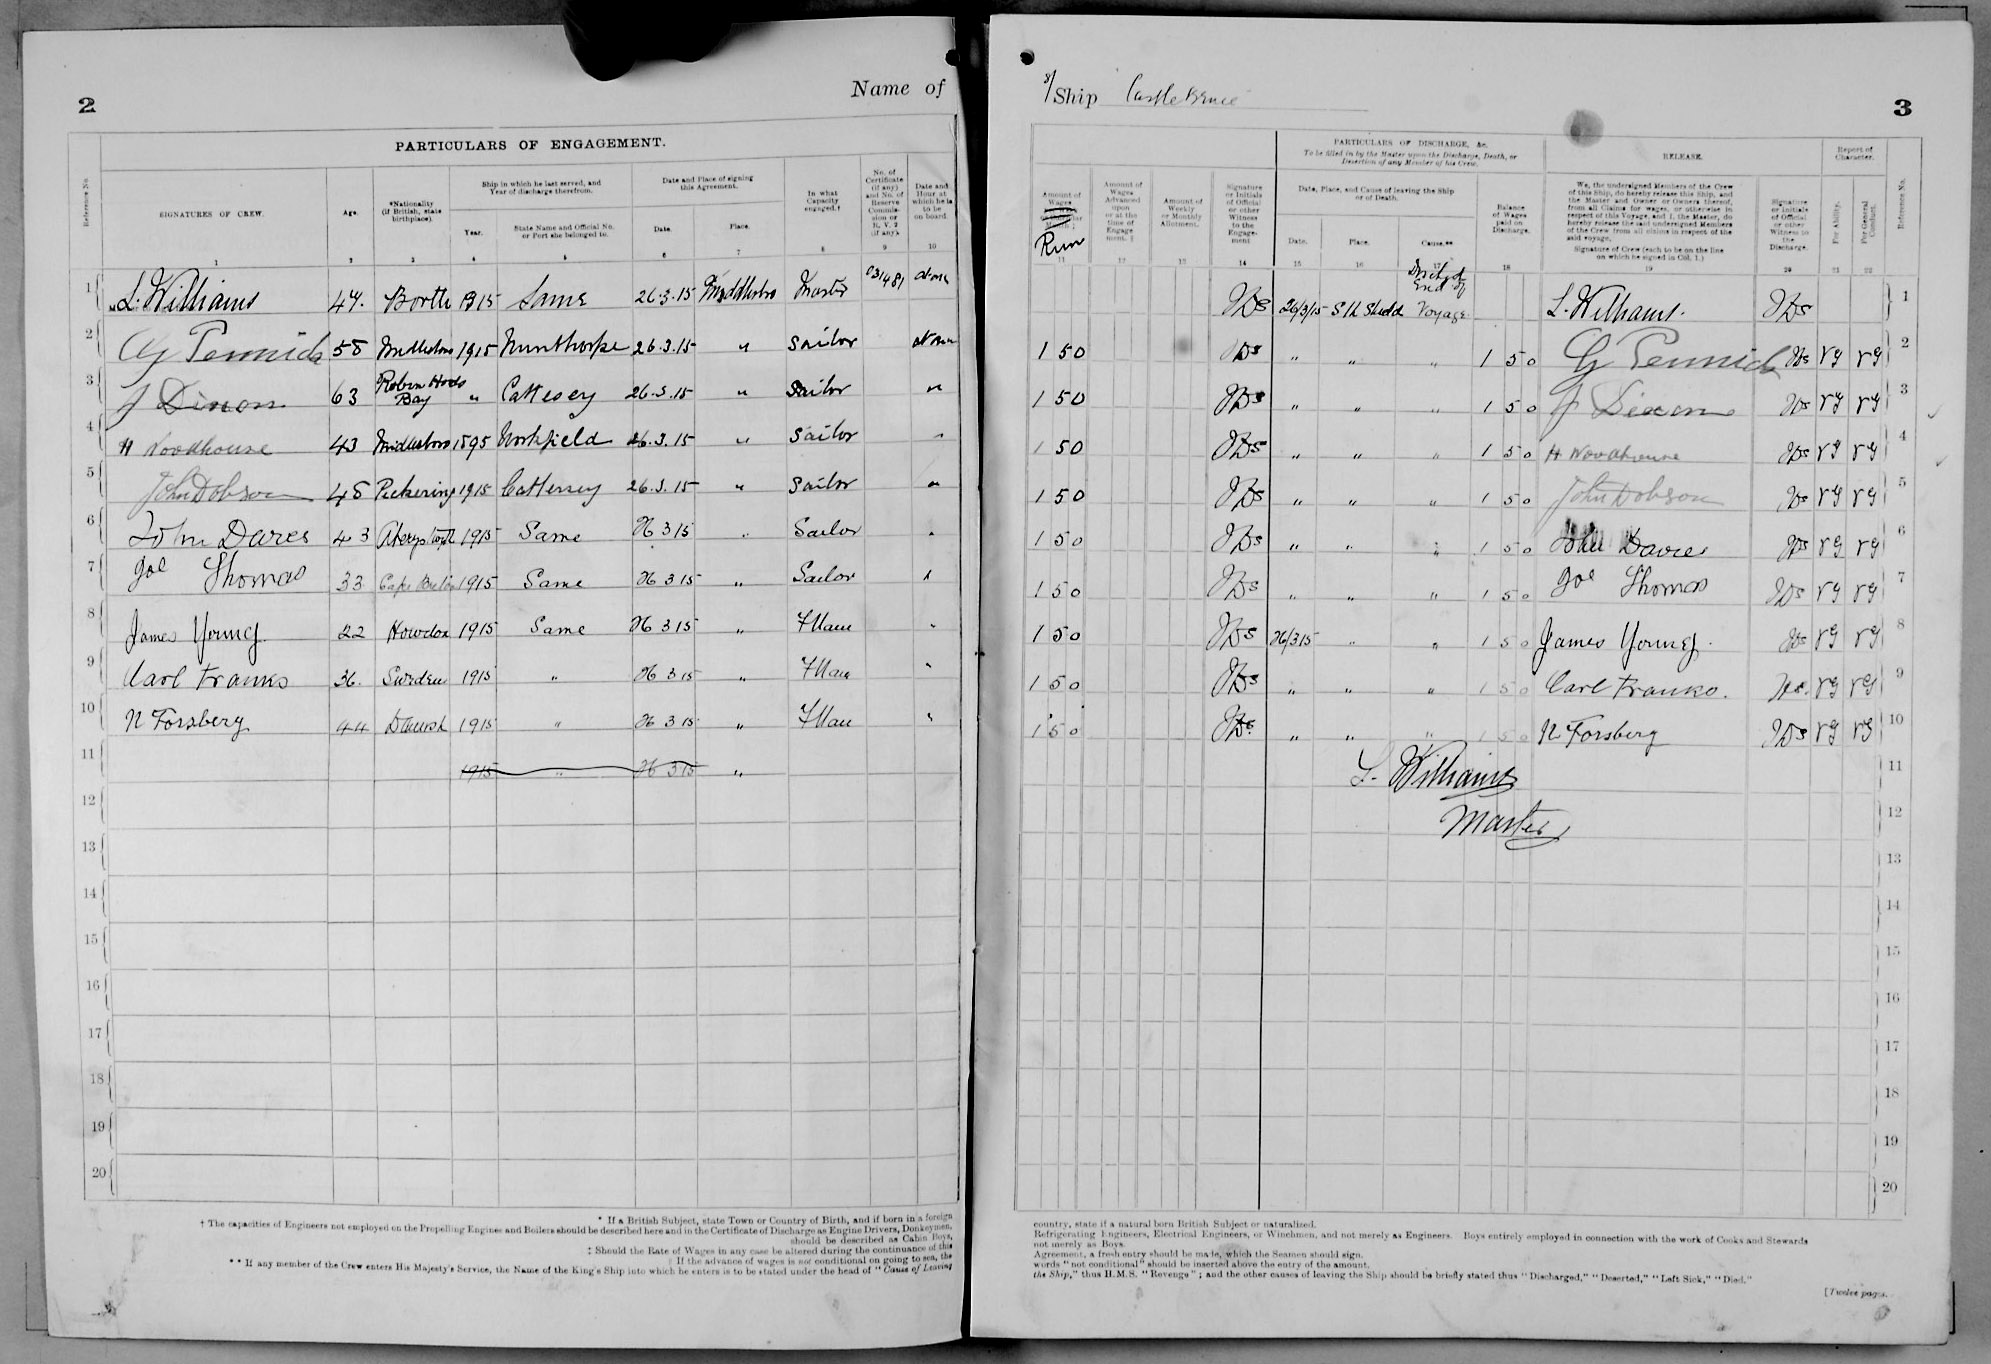 2
Name of
PARTICULARS OF ENGAGEMENT.
Reference No.
SIGNATURES OF CREW.
Age.
*Nationality (if British, state birthplace).
Ship in which he last served, and Year of discharge therefrom.
Year.
State Name and Official No. or Port she belonged to.
Date and Place of signing this Agreement.
Date.
Place.
In what Capacity engaged.†
No. of Certificate (if any) and No. of Reserve Commission or R. V. 2 (if any).
Date and Hour at which he is to be on board.
1 2 3 4 5 6 7 8 9 10
1 L. Williams 47. Borth 1915 Same 26.3.15 Middlesbro Master 031481 at once
2 Pennick 58 Middlesbro 1915 Nunthorpe 26.3.15 " Sailor at once
3 J Dixon 63 Robin Hoods Bay " Cattesey 26.3.15 " Sailor "
4 H Woodhouse 43 Middlesbro 1895 26.3.15 " Sailor "
5 John Dobson 48 Pickering 1915 Cattersey 26.3.15 " Sailor "
6 John Davies 43 Aberystwyth 1915 Same 26 3 15 " Sailor "
7 Joe Thomas 33 Cape Breton 1915 Same 26 3 15 " Sailor "
8 James Young. 22 Howdon 1915 Same 26 3 15 " FMan "
9 Carl Franks 36. Sweden 1915 " 26 3 15 " FMan "
10 N Forsberg 44 Danish 1915 " 26 3 15 " FMan "
11 1915 " 26 3 15 "
12
13
14
15
16
17
18
19
20
* If a British Subject, state Town or Country of Birth, and if born in a foreign
† The capacities of Engineers not employed on the Propelling Engines and Boilers should be described here and in the Certificate of Discharge as Engine Drivers, Donkeymen,
should be described as Cabin Boys,
‡ Should the Rate of Wages in any case be altered during the continuance of this
If the advance of wages is not conditional on going to sea, the
** If any member of the Crew enters His Majesty's Service, the Name of the King's Ship into which he enters is to be stated under the head of "Cause of Leaving
S/Ship Castle Bruce
3
PARTICULARS OF DISCHARGE, &c.
To be filled in by the Master upon the Discharge, Death, or Desertion of any Member of his Crew.
RELEASE.
Report of Character.
Amount of Wages
Run
Amount of Wages Advanced upon or at the time of Engagement. ‡
Amount of Weekly or Monthly Allotment.
Signature or Initials of Official or other Witness to the Engagement
Date, Place, and Cause of leaving the Ship or of Death.
Date. Place. Cause.**
Balance of Wages paid on Discharge.
We, the undersigned Members of the Crew of this Ship, do hereby release this Ship, and the Master and Owner or Owners thereof, from all Claims for wages, or otherwise in respect of this Voyage, and I, the Master, do hereby release the said undersigned Members of the Crew from all claims in respect of the said voyage.
Signature of Crew (each to be on the line on which he signed in Col. 1.)
Signature or Initials of Official or other Witness to the Discharge.
For Ability.
For General Conduct.
Reference No.
11 12 13 14 15 16 17 18 19 20 21 22
26/3/15 Sth Shields Disched End of Voyage L. Williams. 1
1 5 0 " " " 1 5 0 Pennick VG VG 2
1 5 0 " " " 1 5 0 J Dixon VG VG 3
1 5 0 " " " 1 5 0 H Woodhouse VG VG 4
1 5 0 " " " 1 5 0 John Dobson VG VG 5
1 5 0 " " " 1 5 0 John Davies VG VG 6
1 5 0 " " " 1 5 0 Joe Thomas VG VG 7
1 5 0 26/3 15 " " 1 5 0 James Young. VG VG 8
1 5 0 " " " 1 5 0 Carl Franks. VG VG 9
1 5 0 " " " 1 5 0 N Forsberg VG VG 10
L. Williams 11
Master 12
13
14
15
16
17
18
19
20
country, state if a natural born British Subject or naturalized.
Refrigerating Engineers, Electrical Engineers, or Winchmen, and not merely as Engineers. Boys entirely employed in connection with the work of Cooks and Stewards
not merely as Boys.
Agreement, a fresh entry should be made, which the Seamen should sign.
words "not conditional" should be inserted above the entry of the amount.
the Ship," thus H.M.S. "Revenge"; and the other causes of leaving the Ship should be briefly stated thus "Discharged," "Deserted," "Left Sick," "Died."
[Twelve pages.